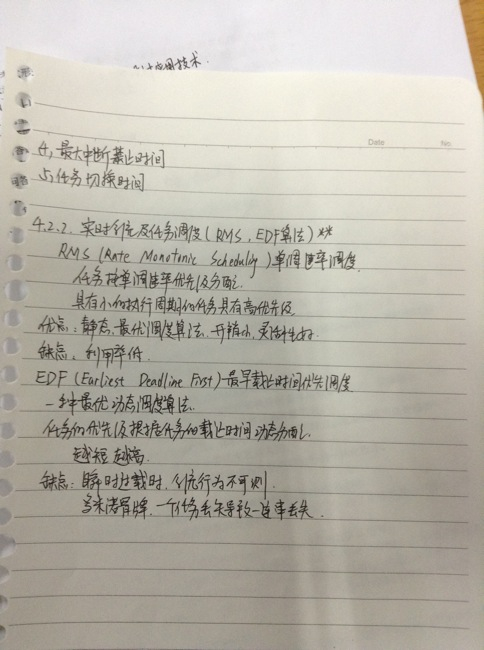 应用技术.
Date No.
4, 最大中断禁止时间
5, 任务切换时间
4.2.2. 实时系统及任务调度(RMS, EDF算法)**
RMS (Rate Monotonic Scheduling) 单调速率调度.
任务按单调速率优先级分配.
具有小的执行周期的任务具有高优先级
优点: 静态最优调度算法, 开销小, 灵活性好.
缺点: 利用率低.
EDF (Earliest Deadline First) 最早截止时间优先调度
一种最优动态调度算法.
任务的优先级根据任务的截止时间动态分配.
越短越高.
缺点: 瞬时过载时, 系统行为不可测.
多米诺骨牌, 一个任务丢失导致一连串丢失.